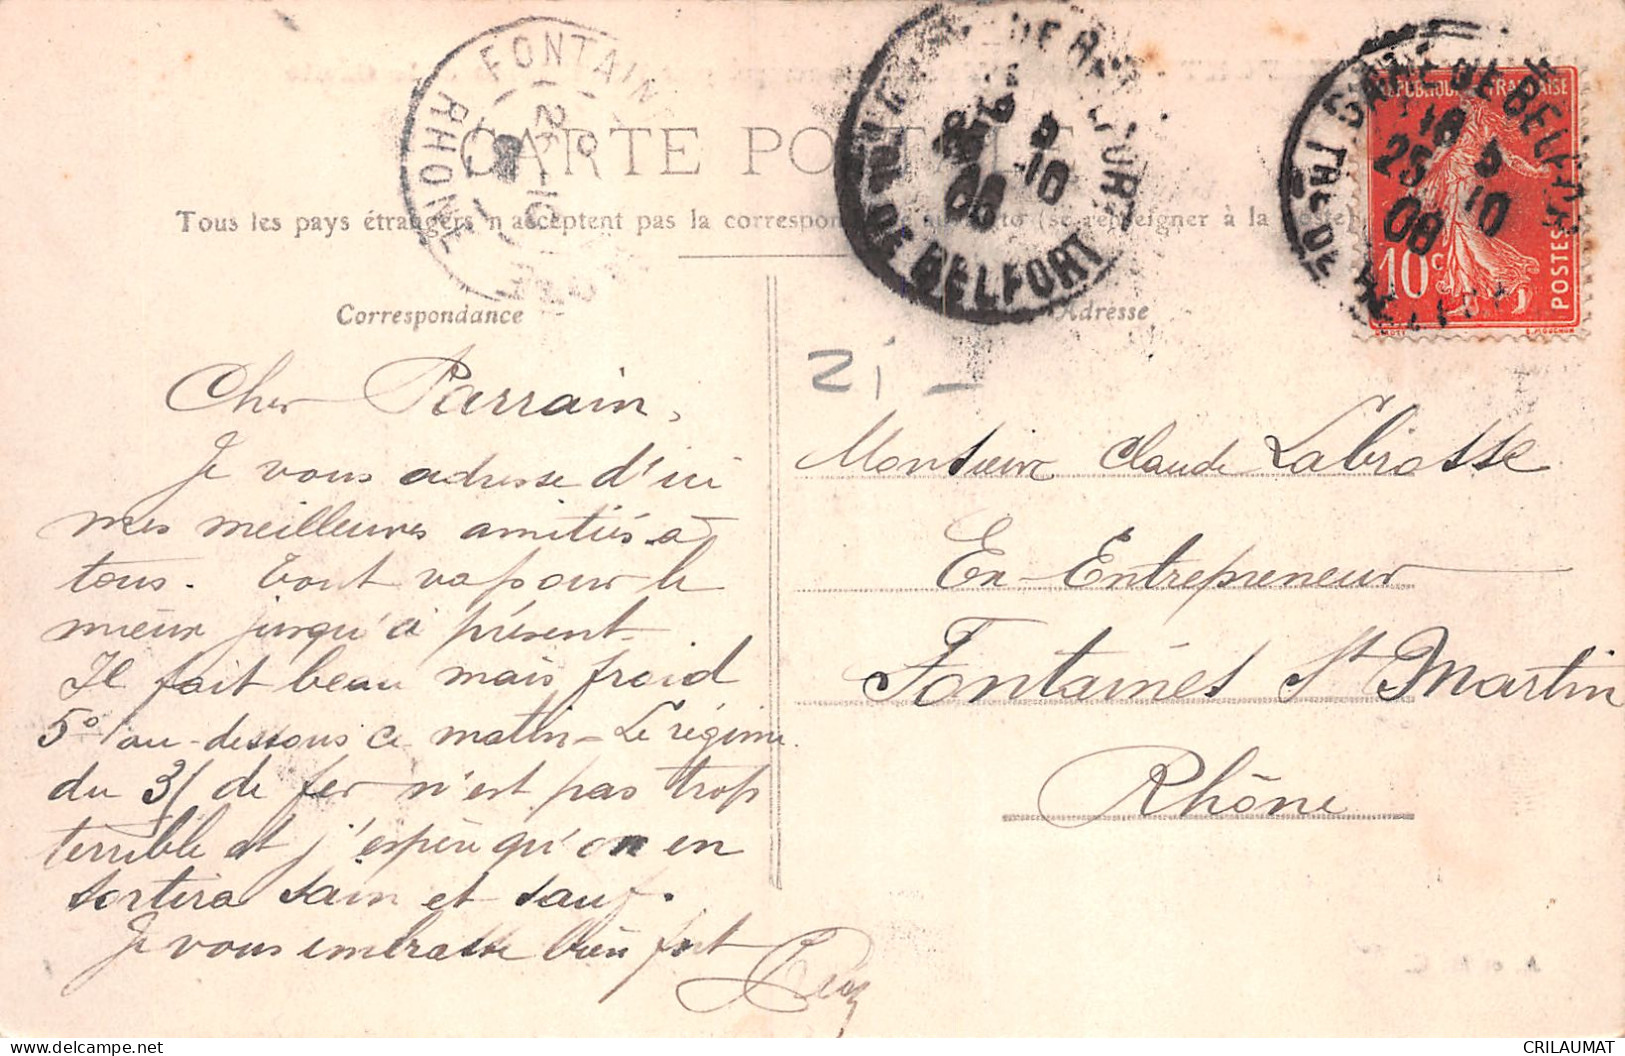 CARTE POSTALE
Tous les pays étrangers n'acceptent pas la correspondance au recto (se renseigner à la poste)
Correspondance
Adresse
FONTAINES
RHONE
25 10
GARE DE BELFORT
TRE DE BELFORT
18 5
25 10
08
BELFORT
10
08
REPUBLIQUE FRANÇAISE
10c
POSTES
21 -
Cher Parrain,
Je vous adresse d'ici
mes meilleures amitiés à
tous. Tout va pour le
mieux jusqu'à présent
Il fait beau mais froid
5° au-dessous ce matin - Le régime
du 3/ de fer n'est pas trop
terrible et j'espère qu'on en
sortira sain et sauf.
Je vous embrasse bien fort
Monsieur Claude Labrosse
Ex-Entrepreneur
Fontaines St Martin
Rhône
CRILAUMAT